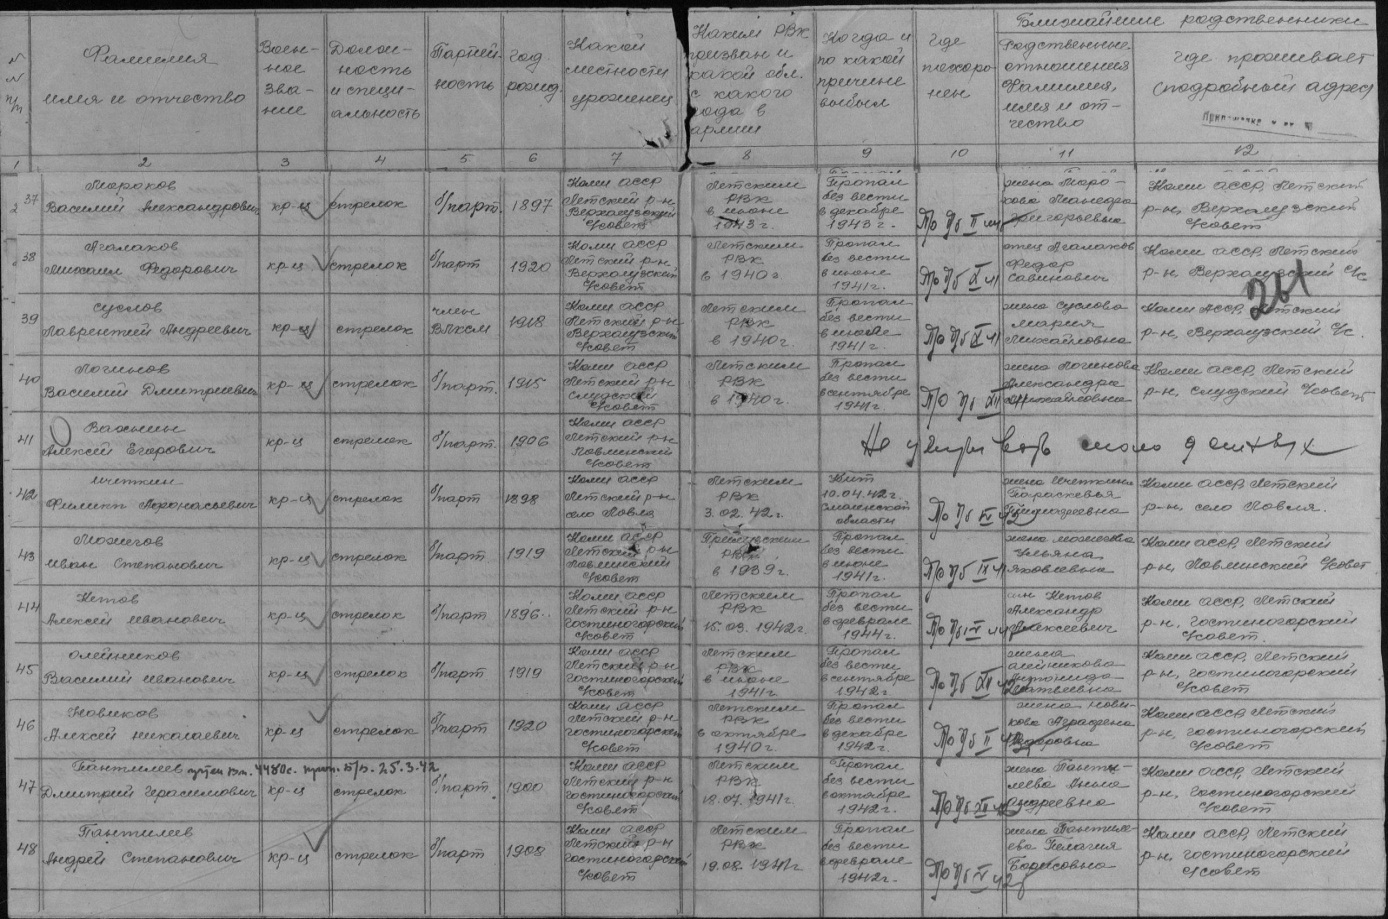 Ближайшие родственники
№ № п/п
Фамилия имя и отчество
Воен-ное зва-ние
Долж-ность и специ-альность
Партий-ность
год рожд.
Какой местности уроженец
Каким РВК призван и какой обл. с какого года в армии
Когда и по какой причине выбыл
где похоро-нен
Родственные отношения Фамилия, имя и от-чество
где проживает (подробный адрес)
1 2 3 4 5 6 7 8 9 10 11 12
37 Мораков Василий Александрович кр-ц стрелок б/парт. 1897 Коми АССР Летский р-н Верхолузский с/совет Летским РВК в июне 1943 г. Пропал без вести в декабре 1943 г. жена Григорьевна Коми АССР, Летский р-н, Верхолузский с/совет
38 Михаил Федорович кр-ц стрелок б/парт 1920 Коми АССР Летский р-н Верхолузский с/совет Летским РВК в 1940 г. Пропал без вести в июне 1941 г. отец Федор Савинович Коми АССР, Летский р-н, Верхолузский с/с
261
39 Суслов Лаврентий Андреевич кр-ц стрелок член ВЛКСМ 1918 Коми АССР Летский р-н Верхолузский с/совет Летским РВК в 1940 г. Пропал без вести в 1941 г. жена Суслова Мария Михайловна Коми АССР, Летский р-н, Верхолузский с/с.
40 Логинов Василий Дмитриевич кр-ц стрелок б/парт. 1915 Коми АССР Летский р-н Слудский с/совет Летским РВК в 1940 г. Пропал без вести в сентябре 1941 г. жена Логинова Александра Михайловна Коми АССР, Летский р-н, Слудский с/совет
41 Алексей Егорович кр-ц стрелок б/парт. 1906 Коми АССР Летский р-н Ловлинский с/совет
42 Филипп кр-ц стрелок б/парт 1898 Коми АССР Летский р-н село Ловля Летским РВК 3.02.42 г. Убит 10.04.42 г. Смоленской области жена Параскевья Коми АССР, Летский р-н, село Ловля.
43 Можегов Иван Степанович кр-ц стрелок б/парт 1919 Коми АССР Летский р-н Ловлинский с/совет РВК в 1939 г. Пропал без вести в июне 1941 г. жена Можегова Ульяна Яковлевна Коми АССР, Летский р-н, Ловлинский с/совет
44 Алексей Иванович кр-ц стрелок б/парт 1896 Коми АССР Летский р-н Гостиногорский с/совет Летским РВК 15.03.1942 г. Пропал без вести в феврале 1944 г. Александр Алексеевич Коми АССР, Летский р-н, Гостиногорский с/совет
45 Олейников Василий Иванович кр-ц стрелок б/парт 1919 Коми АССР Летский р-н Гостиногорский с/совет Летским РВК в июне 1941 г. Пропал без вести в сентябре 1942 г. жена Олейникова Матвеевна Коми АССР, Летский р-н, Гостиногорский с/совет
46 Новиков Алексей Николаевич кр-ц стрелок б/парт 1920 Коми АССР Летский р-н Гостиногорский с/совет Летским РВК в октябре 1940 г. Пропал без вести в декабре 1942 г. жена Нови-кова Аграфена Федоровна Коми АССР, Летский р-н, Гостиногорский с/совет
47 Пантилеев Дмитрий Герасимович кр-ц стрелок б/парт. 1900 Коми АССР Летский р-н Гостиногорский с/совет Летским РВК 18.07.1941 г. Пропал без вести в октябре 1942 г. жена Панти-леева Анна Андреевна Коми АССР, Летский р-н, Гостиногорский с/совет
48 Пантилеев Андрей Степанович кр-ц стрелок б/парт 1908 Коми АССР Летский р-н Гостиногорский с/совет Летским РВК 19.08.1941 г. Пропал без вести в феврале 1942 г. жена Пантиле-ева Пелагия Борисовна Коми АССР, Летский р-н, Гостиногорский с/совет